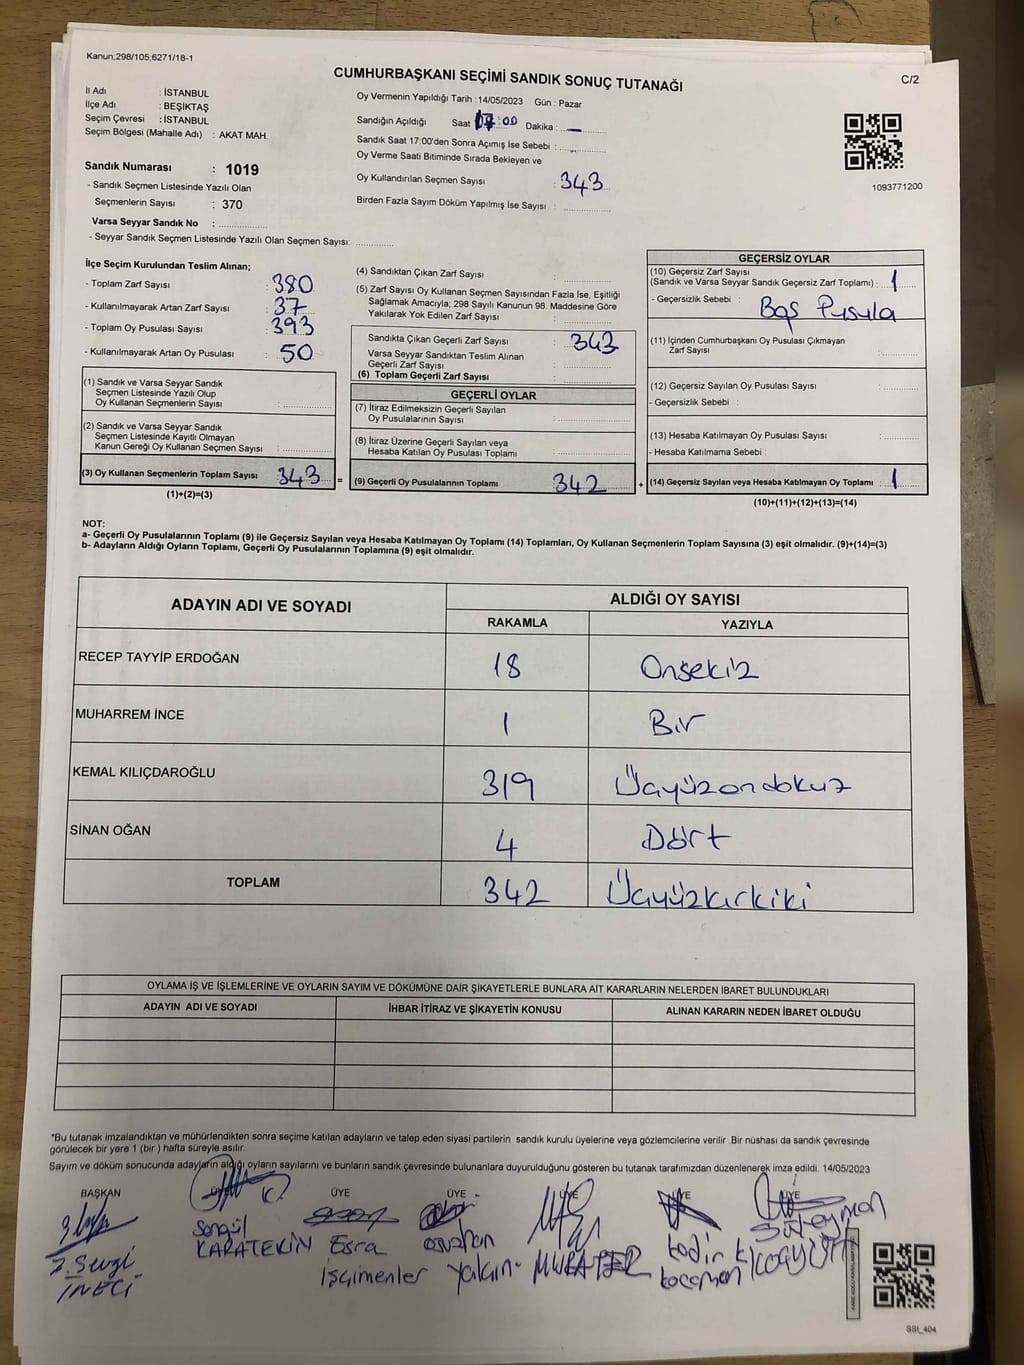 Kanun;298/105;6271/18-1
CUMHURBAŞKANI SEÇİMİ SANDIK SONUÇ TUTANAĞI
C/2
İl Adı : İSTANBUL
İlçe Adı : BEŞİKTAŞ
Seçim Çevresi : İSTANBUL
Seçim Bölgesi (Mahalle Adı) : AKAT MAH.
Sandık Numarası : 1019
- Sandık Seçmen Listesinde Yazılı Olan
Seçmenlerin Sayısı : 370
Varsa Seyyar Sandık No :
- Seyyar Sandık Seçmen Listesinde Yazılı Olan Seçmen Sayısı:
Oy Vermenin Yapıldığı Tarih : 14/05/2023 Gün : Pazar
Sandığın Açıldığı Saat 17:00 Dakika :
Sandık Saat 17:00'den Sonra Açımış İse Sebebi :
Oy Verme Saati Bitiminde Sırada Bekleyen ve
Oy Kullandırılan Seçmen Sayısı : 343
Birden Fazla Sayım Döküm Yapılmış İse Sayısı :
1093771200
İlçe Seçim Kurulundan Teslim Alınan;
- Toplam Zarf Sayısı : 380
- Kullanılmayarak Artan Zarf Sayısı : 37
- Toplam Oy Pusulası Sayısı : 393
- Kullanılmayarak Artan Oy Pusulası : 50
(1) Sandık ve Varsa Seyyar Sandık
Seçmen Listesinde Yazılı Olup
Oy Kullanan Seçmenlerin Sayısı :
(2) Sandık ve Varsa Seyyar Sandık
Seçmen Listesinde Kayıtlı Olmayan
Kanun Gereği Oy Kullanan Seçmen Sayısı :
(3) Oy Kullanan Seçmenlerin Toplam Sayısı : 343 =
(1)+(2)=(3)
(4) Sandıktan Çıkan Zarf Sayısı :
(5) Zarf Sayısı Oy Kullanan Seçmen Sayısından Fazla İse, Eşitliği
Sağlamak Amacıyla; 298 Sayılı Kanunun 98. Maddesine Göre
Yakılarak Yok Edilen Zarf Sayısı :
Sandıkta Çıkan Geçerli Zarf Sayısı : 343
Varsa Seyyar Sandıktan Teslim Alınan
Geçerli Zarf Sayısı :
(6) Toplam Geçerli Zarf Sayısı :
GEÇERLİ OYLAR
(7) İtiraz Edilmeksizin Geçerli Sayılan
Oy Pusulalarının Sayısı :
(8) İtiraz Üzerine Geçerli Sayılan veya
Hesaba Katılan Oy Pusulası Toplamı :
(9) Geçerli Oy Pusulalarının Toplamı : 342 +
GEÇERSİZ OYLAR
(10) Geçersiz Zarf Sayısı
(Sandık ve Varsa Seyyar Sandık Geçersiz Zarf Toplamı) : 1
- Geçersizlik Sebebi : Boş Pusula
(11) İçinden Cumhurbaşkanı Oy Pusulası Çıkmayan
Zarf Sayısı :
(12) Geçersiz Sayılan Oy Pusulası Sayısı :
- Geçersizlik Sebebi :
(13) Hesaba Katılmayan Oy Pusulası Sayısı :
- Hesaba Katılmama Sebebi :
(14) Geçersiz Sayılan veya Hesaba Katılmayan Oy Toplamı : 1
(10)+(11)+(12)+(13)=(14)
NOT:
a- Geçerli Oy Pusulalarının Toplamı (9) ile Geçersiz Sayılan veya Hesaba Katılmayan Oy Toplamı (14) Toplamları, Oy Kullanan Seçmenlerin Toplam Sayısına (3) eşit olmalıdır. (9)+(14)=(3)
b- Adayların Aldığı Oyların Toplamı, Geçerli Oy Pusulalarının Toplamına (9) eşit olmalıdır.
ADAYIN ADI VE SOYADI
ALDIĞI OY SAYISI
RAKAMLA YAZIYLA
RECEP TAYYİP ERDOĞAN 18 Onsekiz
MUHARREM İNCE 1 Bir
KEMAL KILIÇDAROĞLU 319 Üçyüzondokuz
SİNAN OĞAN 4 Dört
TOPLAM 342 Üçyüzkırkiki
OYLAMA İŞ VE İŞLEMLERİNE VE OYLARIN SAYIM VE DÖKÜMÜNE DAİR ŞİKAYETLERLE BUNLARA AİT KARARLARIN NELERDEN İBARET BULUNDUKLARI
ADAYIN ADI VE SOYADI İHBAR İTİRAZ VE ŞİKAYETİN KONUSU ALINAN KARARIN NEDEN İBARET OLDUĞU
*Bu tutanak imzalandıktan ve mühürlendikten sonra seçime katılan adayların ve talep eden siyasi partilerin sandık kurulu üyelerine veya gözlemcilerine verilir .Bir nüshası da sandık çevresinde
görülecek bir yere 1 (bir ) hafta süreyle asılır.
Sayım ve döküm sonucunda adayların aldığı oyların sayılarını ve bunların sandık çevresinde bulunanlara duyurulduğunu gösteren bu tutanak tarafımızdan düzenlenerek imza edildi. 14/05/2023
BAŞKAN ÜYE ÜYE ÜYE ÜYE ÜYE ÜYE
Z. Sevgi
İNECİ
Songül
KARATEKİN
Esra
İşçimenler
Oğuzhan
Yalçın
Kadir
Kocaman
Süleyman
SSİ_404